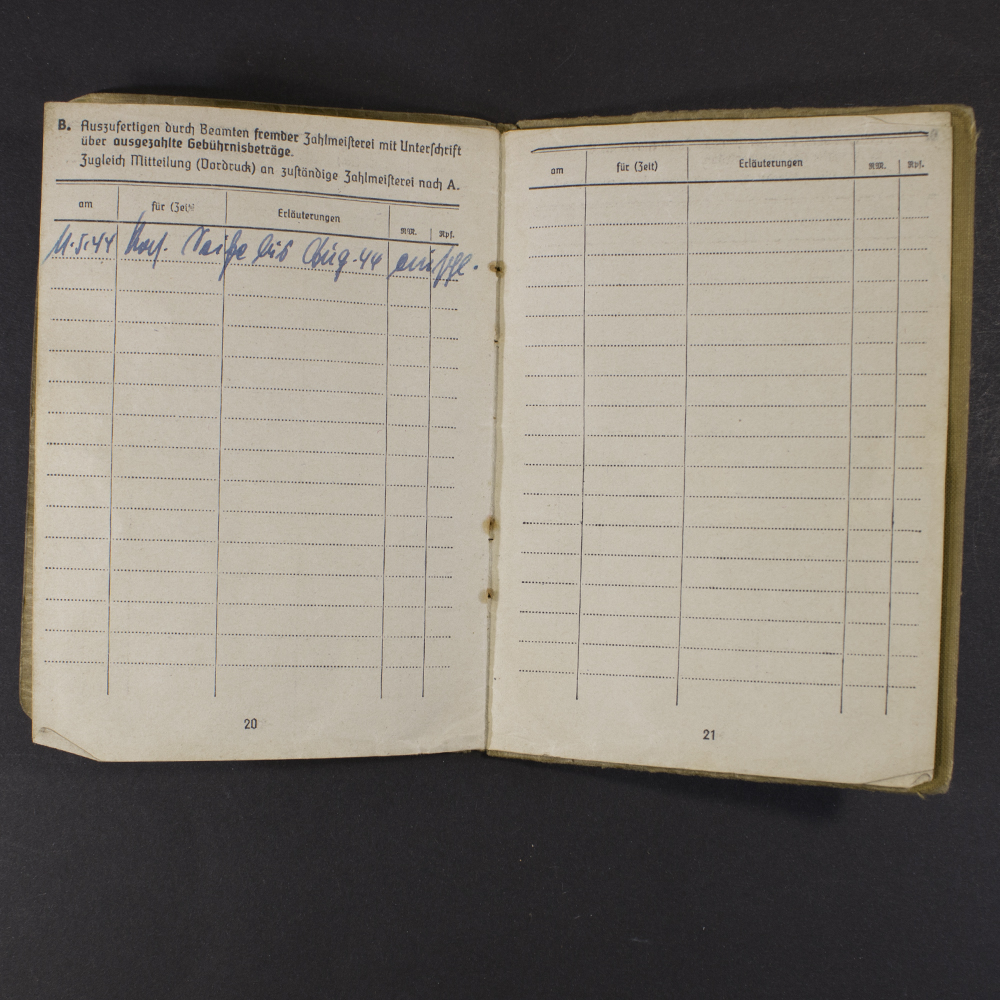 B. Auszufertigen durch Beamten fremder Zahlmeisterei mit Unterschrift
über ausgezahlte Gebührnisbeträge.
Zugleich Mitteilung (Vordruck) an zuständige Zahlmeisterei nach A.
am für (Zeit) Erläuterungen RM. Rpf.
11.5.44 Seife bis Aug. 44 einschl.
20
am für (Zeit) Erläuterungen RM. Rpf.
21